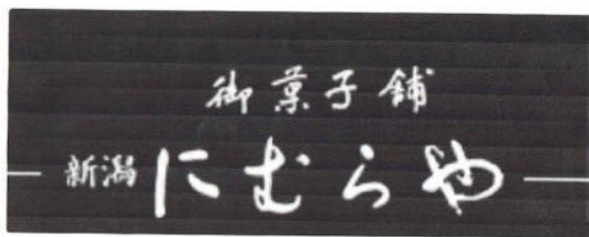 御菓子舗
新潟 にむらや